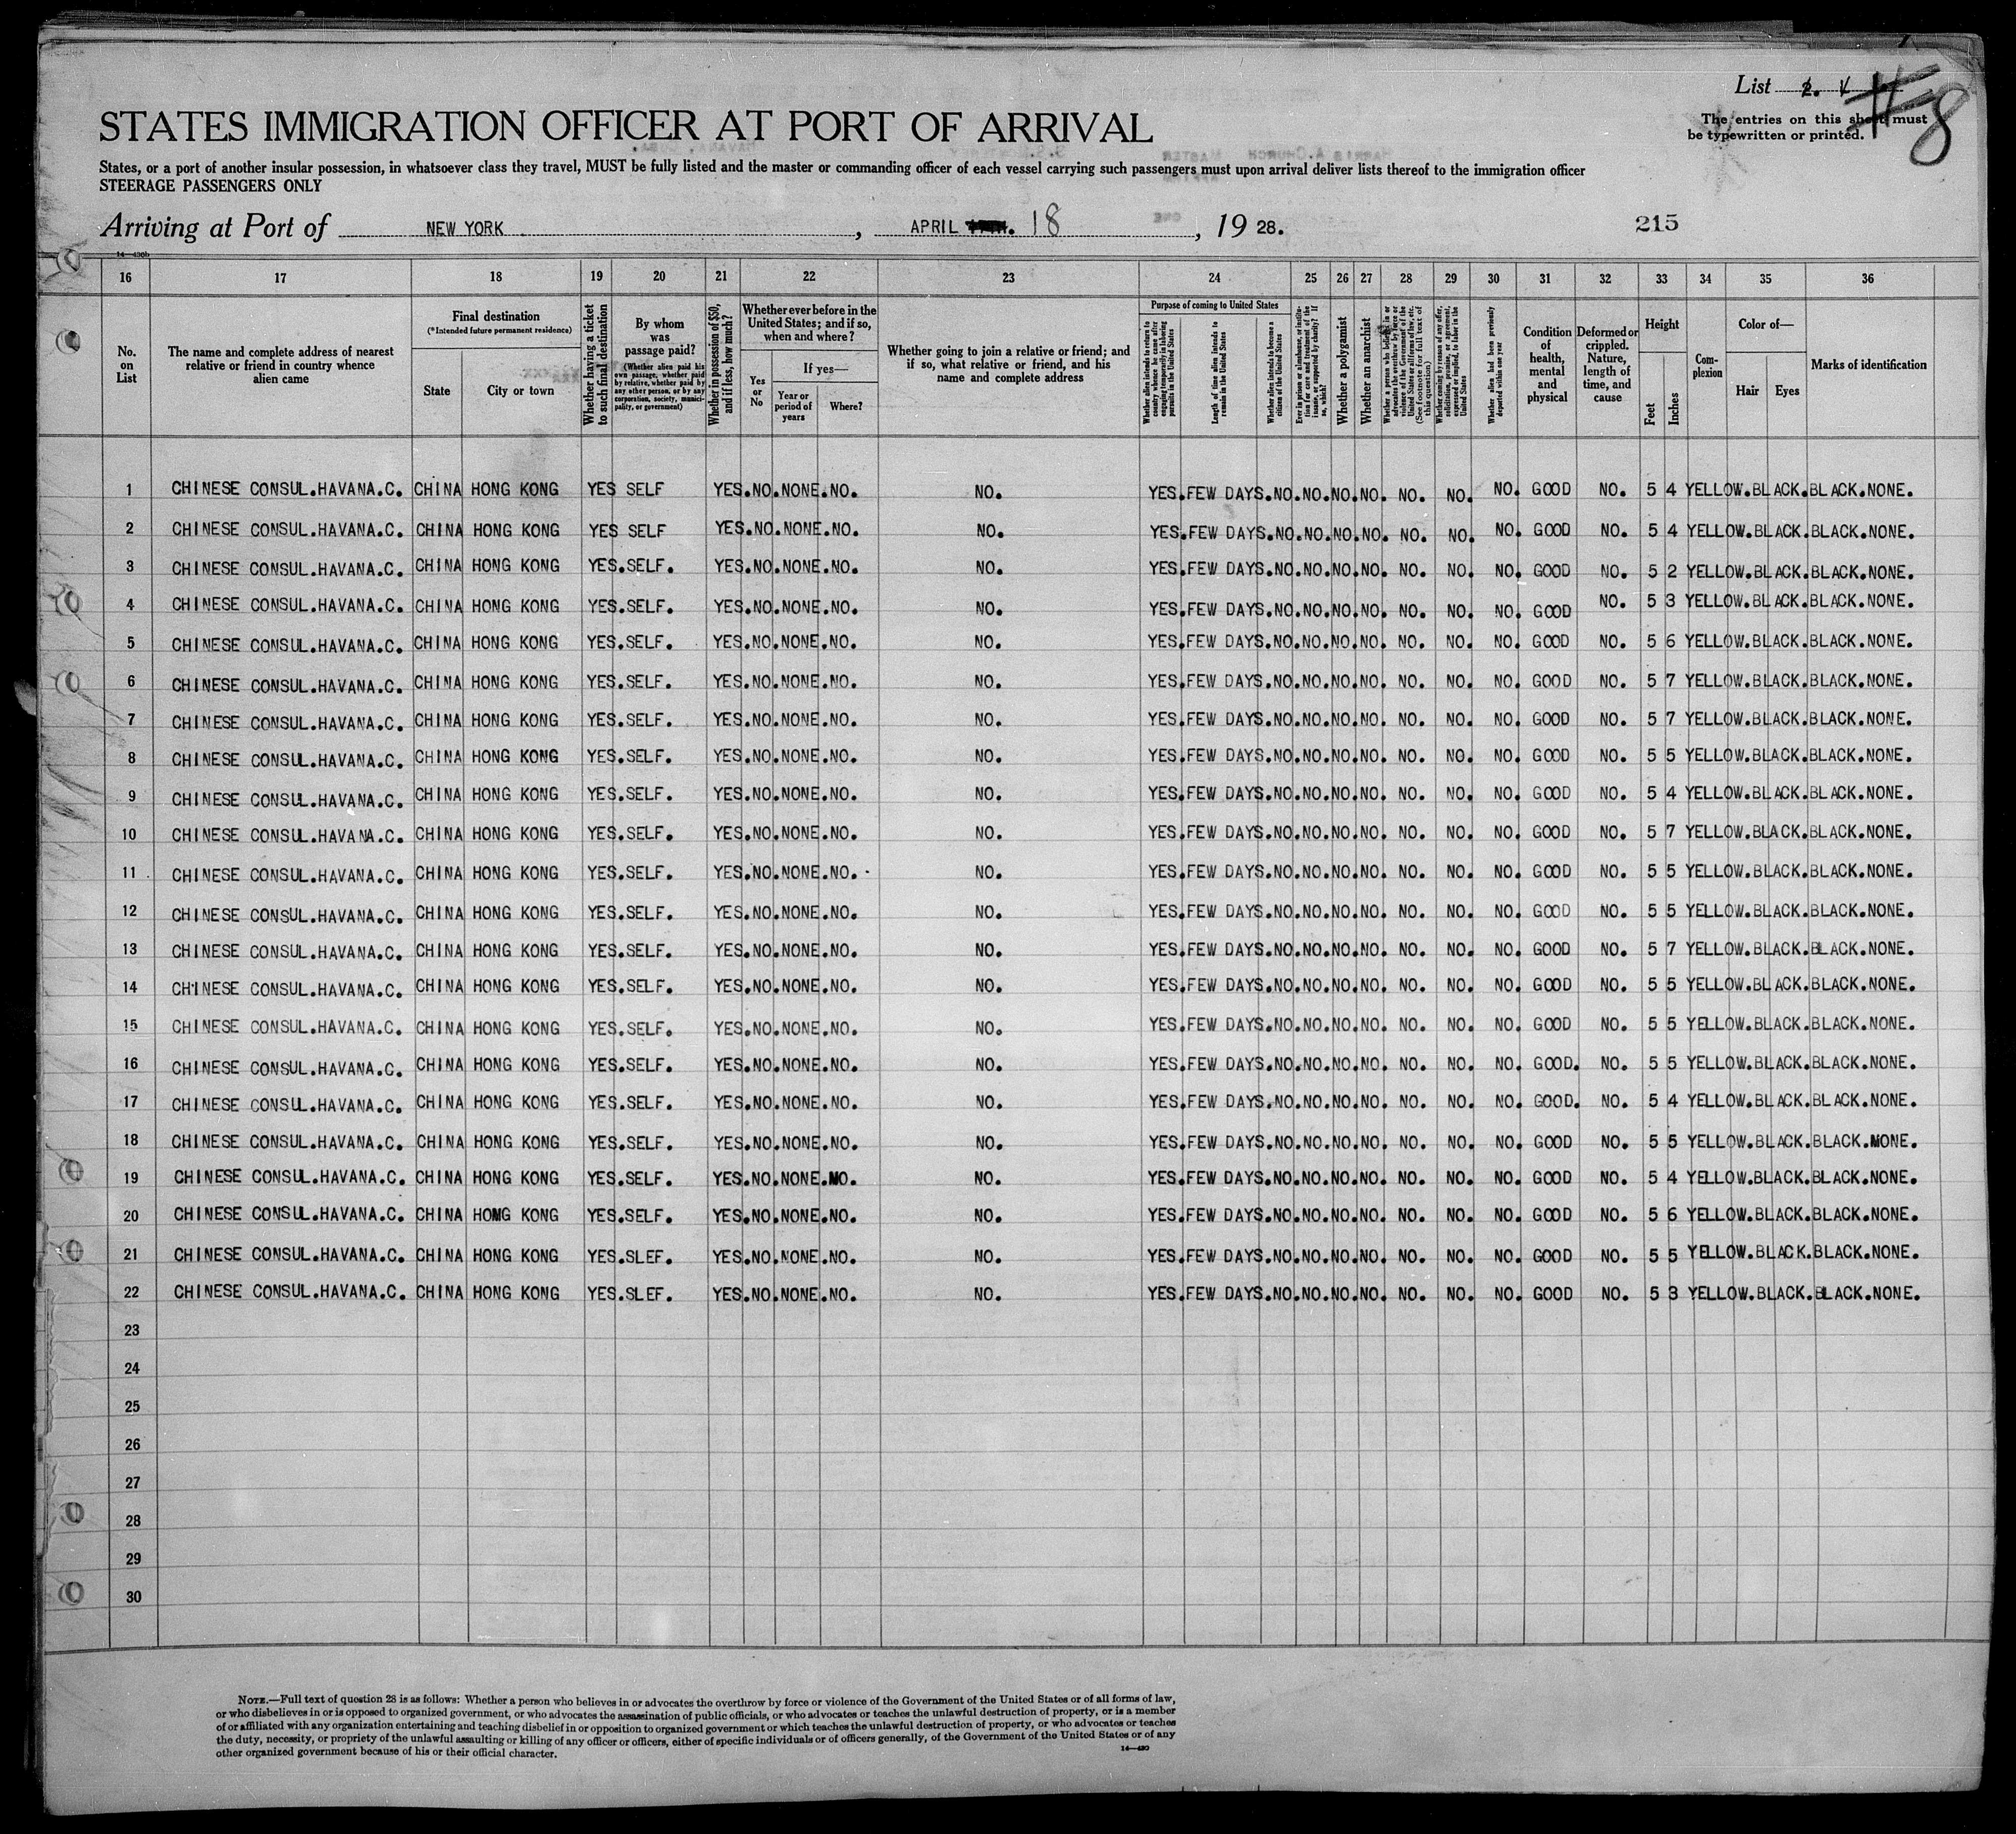 List 2.
#8
The entries on this sheet must
be typewritten or printed.
STATES IMMIGRATION OFFICER AT PORT OF ARRIVAL
States, or a port of another insular possession, in whatsoever class they travel, MUST be fully listed and the master or commanding officer of each vessel carrying such passengers must upon arrival deliver lists thereof to the immigration officer
STEERAGE PASSENGERS ONLY
Arriving at Port of NEW YORK, APRIL 18, 1928.
215
14—430b
16 17 18 19 20 21 22 23 24 25 26 27 28 29 30 31 32 33 34 35 36
No. on List
The name and complete address of nearest relative or friend in country whence alien came
Final destination
(*Intended future permanent residence)
State
City or town
Whether having a ticket to such final destination
By whom was passage paid?
(Whether alien paid his own passage, whether paid by relative, whether paid by any other person, or by any corporation, society, municipality, or government)
Whether in possession of $50, and if less, how much?
Whether ever before in the United States; and if so, when and where?
Yes or No
If yes—
Year or period of years
Where?
Whether going to join a relative or friend; and if so, what relative or friend, and his name and complete address
Purpose of coming to United States
Whether alien intends to return to country whence he came after engaging temporarily in laboring pursuits in the United States
Length of time alien intends to remain in the United States
Whether alien intends to become a citizen of the United States
Ever in prison or almshouse, or institution for care and treatment of the insane, or supported by charity? If so, which?
Whether a polygamist
Whether an anarchist
Whether a person who believes in or advocates the overthrow by force or violence of the Government of the United States or all forms of law, etc. (See footnote for full text of this question)
Whether coming by reason of any offer, solicitation, promise, or agreement, expressed or implied, to labor in the United States
Whether alien had been previously deported within one year
Condition of health, mental and physical
Deformed or crippled. Nature, length of time, and cause
Height
Feet
Inches
Complexion
Color of—
Hair
Eyes
Marks of identification
1 CHINESE CONSUL.HAVANA.C. CHINA HONG KONG YES SELF YES.NO.NONE.NO. NO. YES.FEW DAYS.NO.NO.NO.NO. NO. NO. NO. GOOD NO. 5 4 YELLOW.BLACK.BLACK.NONE.
2 CHINESE CONSUL.HAVANA.C. CHINA HONG KONG YES SELF YES.NO.NONE.NO. NO. YES.FEW DAYS.NO.NO.NO.NO. NO. NO. NO. GOOD NO. 5 4 YELLOW.BLACK.BLACK.NONE.
3 CHINESE CONSUL.HAVANA.C. CHINA HONG KONG YES.SELF. YES.NO.NONE.NO. NO. YES.FEW DAYS.NO.NO.NO.NO. NO. NO. NO. GOOD NO. 5 2 YELLOW.BLACK.BLACK.NONE.
4 CHINESE CONSUL.HAVANA.C. CHINA HONG KONG YES.SELF. YES.NO.NONE.NO. NO. YES.FEW DAYS.NO.NO.NO.NO. NO. NO. NO. GOOD NO. 5 3 YELLOW.BLACK.BLACK.NONE.
5 CHINESE CONSUL.HAVANA.C. CHINA HONG KONG YES.SELF. YES.NO.NONE.NO. NO. YES.FEW DAYS.NO.NO.NO.NO. NO. NO. NO. GOOD NO. 5 6 YELLOW.BLACK.BLACK.NONE.
6 CHINESE CONSUL.HAVANA.C. CHINA HONG KONG YES.SELF. YES.NO.NONE.NO. NO. YES.FEW DAYS.NO.NO.NO.NO. NO. NO. NO. GOOD NO. 5 7 YELLOW.BLACK.BLACK.NONE.
7 CHINESE CONSUL.HAVANA.C. CHINA HONG KONG YES.SELF. YES.NO.NONE.NO. NO. YES.FEW DAYS.NO.NO.NO.NO. NO. NO. NO. GOOD NO. 5 7 YELLOW.BLACK.BLACK.NONE.
8 CHINESE CONSUL.HAVANA.C. CHINA HONG KONG YES.SELF. YES.NO.NONE.NO. NO. YES.FEW DAYS.NO.NO.NO.NO. NO. NO. NO. GOOD NO. 5 5 YELLOW.BLACK.BLACK.NONE.
9 CHINESE CONSUL.HAVANA.C. CHINA HONG KONG YES.SELF. YES.NO.NONE.NO. NO. YES.FEW DAYS.NO.NO.NO.NO. NO. NO. NO. GOOD NO. 5 4 YELLOW.BLACK.BLACK.NONE.
10 CHINESE CONSUL.HAVANA.C. CHINA HONG KONG YES.SELF. YES.NO.NONE.NO. NO. YES.FEW DAYS.NO.NO.NO.NO. NO. NO. NO. GOOD NO. 5 7 YELLOW.BLACK.BLACK.NONE.
11 CHINESE CONSUL.HAVANA.C. CHINA HONG KONG YES.SELF. YES.NO.NONE.NO. NO. YES.FEW DAYS.NO.NO.NO.NO. NO. NO. NO. GOOD NO. 5 5 YELLOW.BLACK.BLACK.NONE.
12 CHINESE CONSUL.HAVANA.C. CHINA HONG KONG YES.SELF. YES.NO.NONE.NO. NO. YES.FEW DAYS.NO.NO.NO.NO. NO. NO. NO. GOOD NO. 5 5 YELLOW.BLACK.BLACK.NONE.
13 CHINESE CONSUL.HAVANA.C. CHINA HONG KONG YES.SELF. YES.NO.NONE.NO. NO. YES.FEW DAYS.NO.NO.NO.NO. NO. NO. NO. GOOD NO. 5 7 YELLOW.BLACK.BLACK.NONE.
14 CHINESE CONSUL.HAVANA.C. CHINA HONG KONG YES.SELF. YES.NO.NONE.NO. NO. YES.FEW DAYS.NO.NO.NO.NO. NO. NO. NO. GOOD NO. 5 5 YELLOW.BLACK.BLACK.NONE.
15 CHINESE CONSUL.HAVANA.C. CHINA HONG KONG YES.SELF. YES.NO.NONE.NO. NO. YES.FEW DAYS.NO.NO.NO.NO. NO. NO. NO. GOOD NO. 5 5 YELLOW.BLACK.BLACK.NONE.
16 CHINESE CONSUL.HAVANA.C. CHINA HONG KONG YES.SELF. YES.NO.NONE.NO. NO. YES.FEW DAYS.NO.NO.NO.NO. NO. NO. NO. GOOD. NO. 5 5 YELLOW.BLACK.BLACK.NONE.
17 CHINESE CONSUL.HAVANA.C. CHINA HONG KONG YES.SELF. YES.NO.NONE.NO. NO. YES.FEW DAYS.NO.NO.NO.NO. NO. NO. NO. GOOD. NO. 5 4 YELLOW.BLACK.BLACK.NONE.
18 CHINESE CONSUL.HAVANA.C. CHINA HONG KONG YES.SELF. YES.NO.NONE.NO. NO. YES.FEW DAYS.NO.NO.NO.NO. NO. NO. NO. GOOD NO. 5 5 YELLOW.BLACK.BLACK.NONE.
19 CHINESE CONSUL.HAVANA.C. CHINA HONG KONG YES.SELF. YES.NO.NONE.NO. NO. YES.FEW DAYS.NO.NO.NO.NO. NO. NO. NO. GOOD NO. 5 4 YELLOW.BLACK.BLACK.NONE.
20 CHINESE CONSUL.HAVANA.C. CHINA HONG KONG YES.SELF. YES.NO.NONE.NO. NO. YES.FEW DAYS.NO.NO.NO.NO. NO. NO. NO. GOOD NO. 5 6 YELLOW.BLACK.BLACK.NONE.
21 CHINESE CONSUL.HAVANA.C. CHINA HONG KONG YES.SLEF. YES.NO.NONE.NO. NO. YES.FEW DAYS.NO.NO.NO.NO. NO. NO. NO. GOOD NO. 5 5 YELLOW.BLACK.BLACK.NONE.
22 CHINESE CONSUL.HAVANA.C. CHINA HONG KONG YES.SLEF. YES.NO.NONE.NO. NO. YES.FEW DAYS.NO.NO.NO.NO. NO. NO. NO. GOOD NO. 5 3 YELLOW.BLACK.BLACK.NONE.
23
24
25
26
27
28
29
30
NOTE.—Full text of question 28 is as follows: Whether a person who believes in or advocates the overthrow by force or violence of the Government of the United States or of all forms of law,
or who disbelieves in or is opposed to organized government, or who advocates the assassination of public officials, or who advocates or teaches the unlawful destruction of property, or is a member
of or affiliated with any organization entertaining and teaching disbelief in or opposition to organized government or which teaches the unlawful destruction of property, or who advocates or teaches
the duty, necessity, or propriety of the unlawful assaulting or killing of any officer or officers, either of specific individuals or of officers generally, of the Government of the United States or of any
other organized government because of his or their official character.
14—430